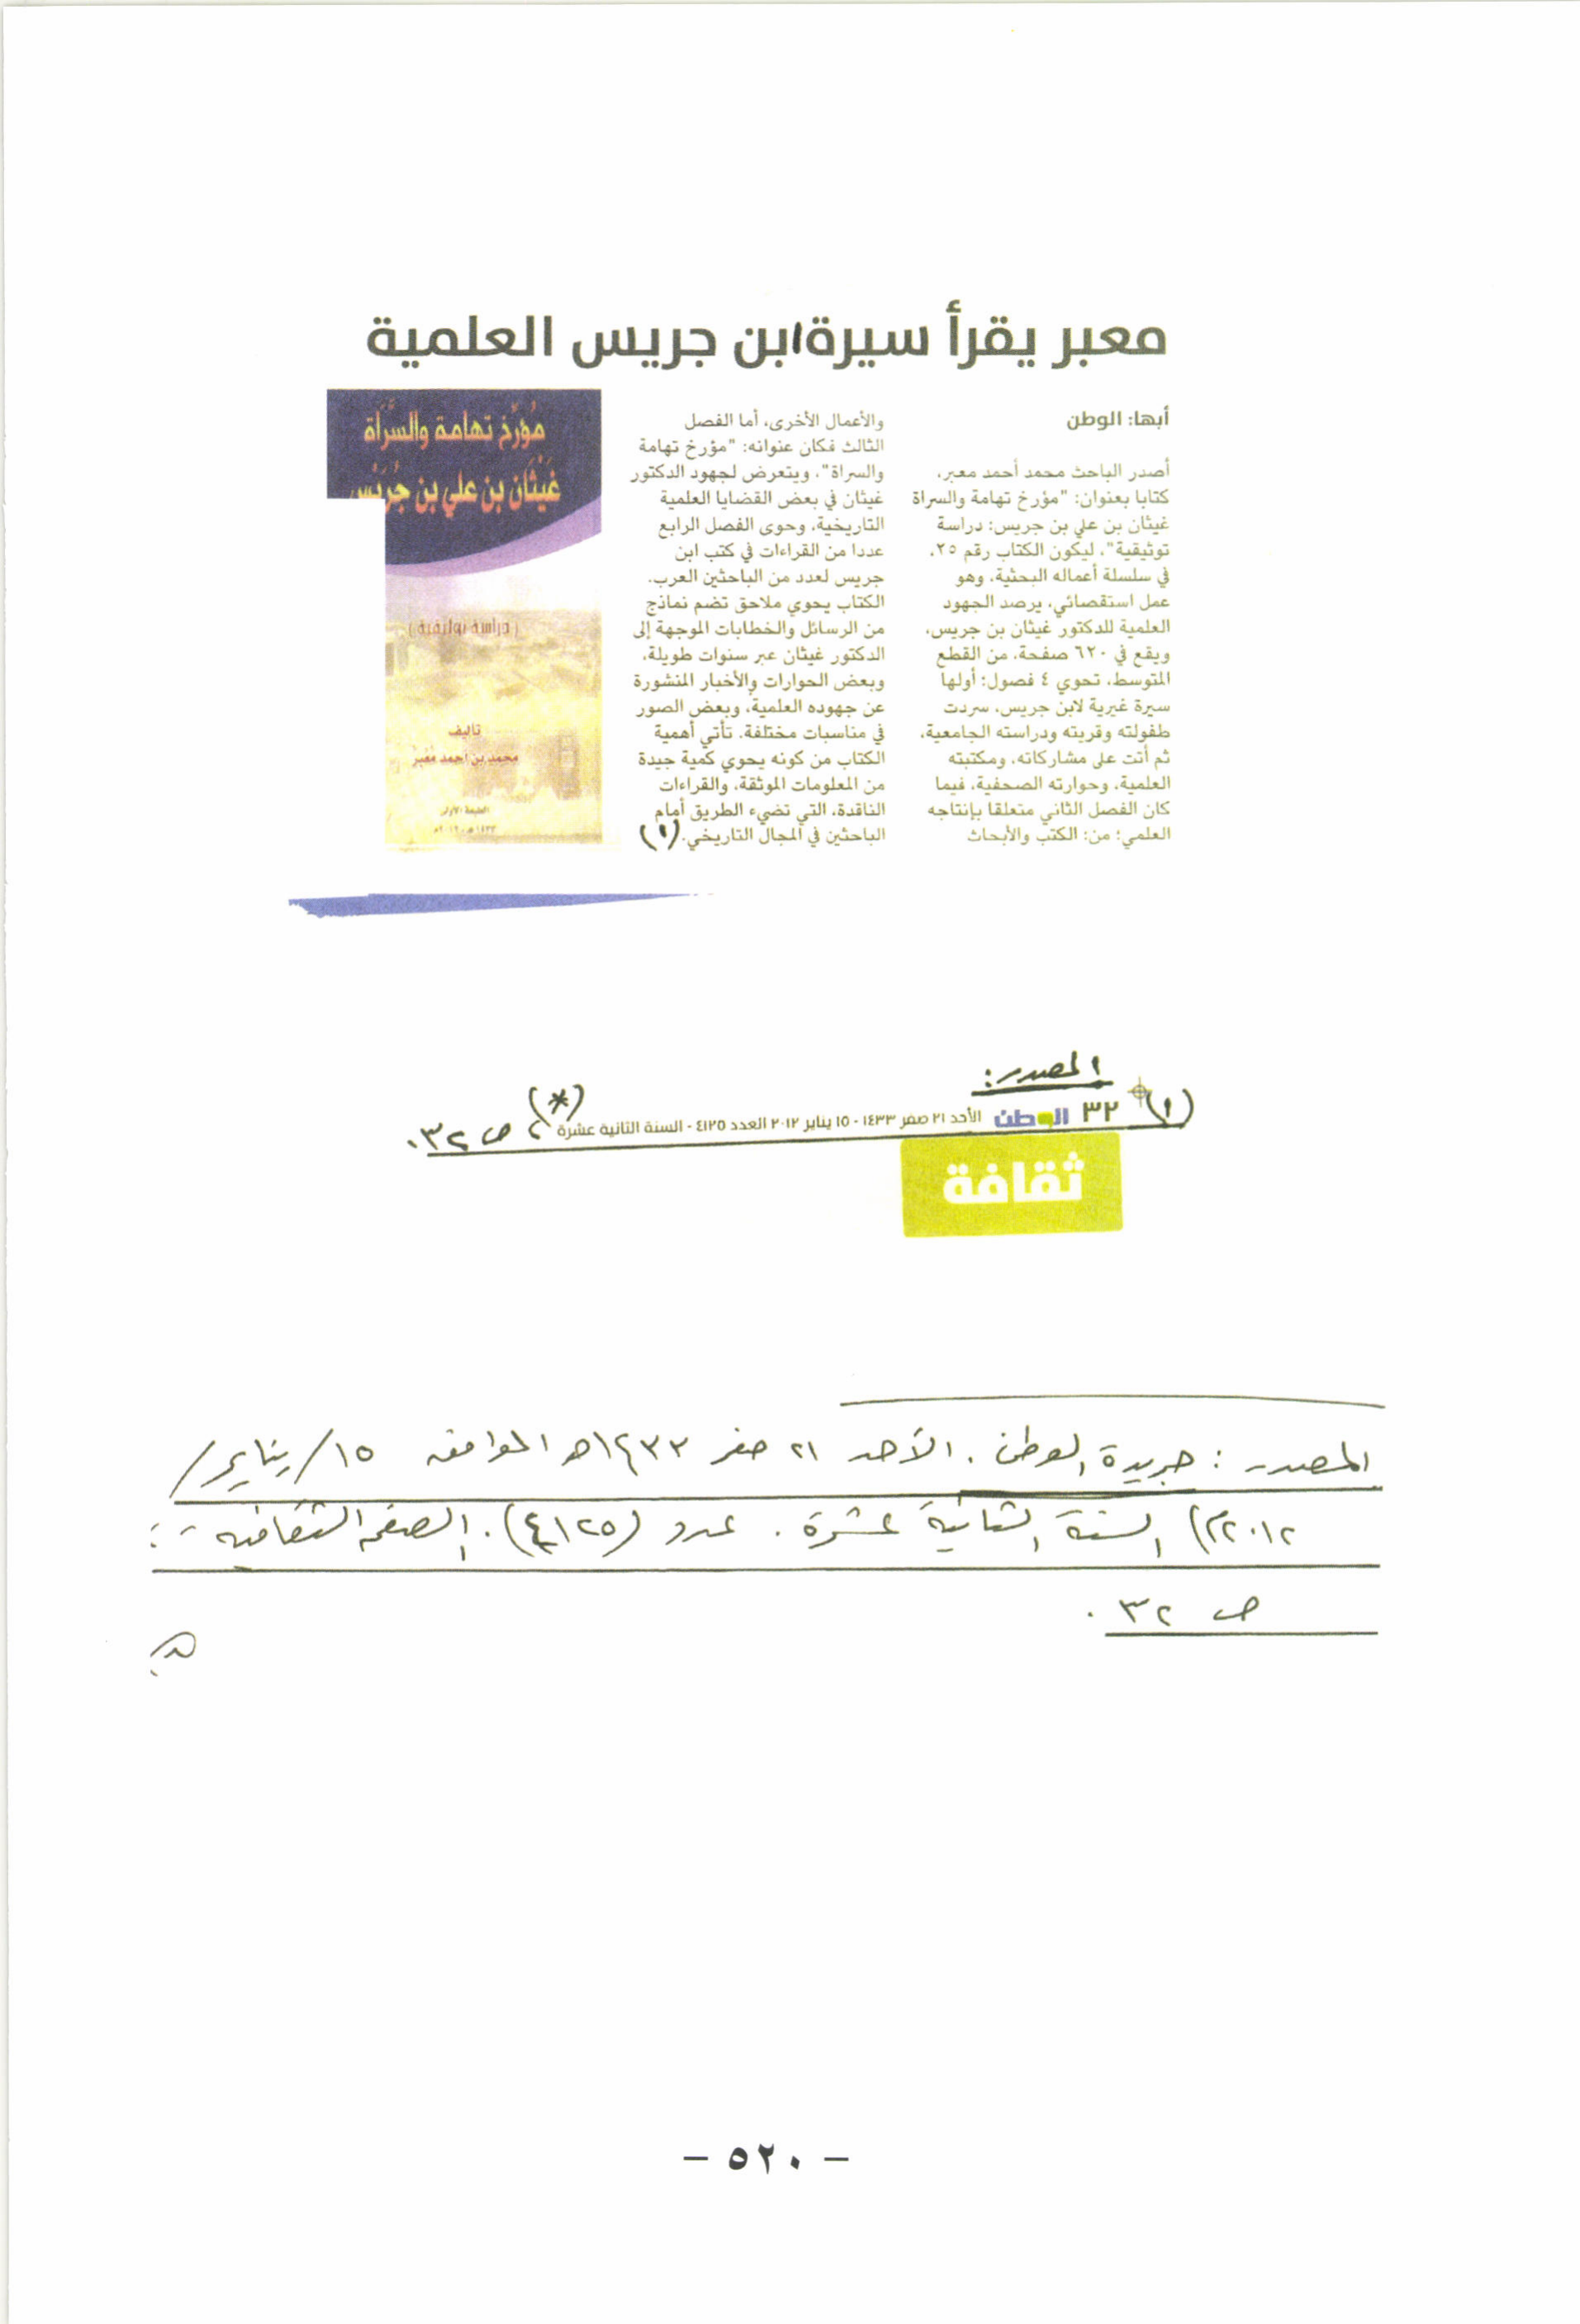 معبر يقرأ سيرة ابن جريس العلمية
أبها: الوطن
أصدر الباحث محمد أحمد معبر،
كتابا بعنوان: "مؤرخ تهامة والسراة
غيثان بن علي بن جريس: دراسة
توثيقية"، ليكون الكتاب رقم ٢٥،
في سلسلة أعماله البحثية، وهو
عمل استقصائي، يرصد الجهود
العلمية للدكتور غيثان بن جريس،
ويقع في ٦٢٠ صفحة، من القطع
المتوسط، تحوي ٤ فصول: أولها
سيرة غيرية لابن جريس، سردت
طفولته وقريته ودراسته الجامعية،
ثم أتت على مشاركاته، ومكتبته
العلمية، وحوارته الصحفية، فيما
كان الفصل الثاني متعلقا بإنتاجه
العلمي؛ من: الكتب والأبحاث
والأعمال الأخرى، أما الفصل
الثالث فكان عنوانه: "مؤرخ تهامة
والسراة"، ويتعرض لجهود الدكتور
غيثان في بعض القضايا العلمية
التاريخية، وحوى الفصل الرابع
عددا من القراءات في كتب ابن
جريس لعدد من الباحثين العرب.
الكتاب يحوي ملاحق تضم نماذج
من الرسائل والخطابات الموجهة إلى
الدكتور غيثان عبر سنوات طويلة،
وبعض الحوارات والأخبار المنشورة
عن جهوده العلمية، وبعض الصور
في مناسبات مختلفة. تأتي أهمية
الكتاب من كونه يحوي كمية جيدة
من المعلومات الموثقة، والقراءات
الناقدة، التي تضيء الطريق أمام
الباحثين في المجال التاريخي. (١)
مُؤرّخ تهامة والسَّرَاة
غَيْثَان بن علي بن جُرَيْس
(دراسة توثيقية)
تأليف
محمد بن أحمد مُعَبّر
الطبعة الأولى
١٤٣٣هـ - ٢٠١٢م
المصدر:
(١) ٣٢ الوطن الأحد ٢١ صفر ١٤٣٣ - ١٥ يناير ٢٠١٢ العدد ٤١٢٥ - السنة الثانية عشرة (*) ، ص ٣٢.
ثقافة
المصدر : جريدة الوطن . الأحد ٢١ صفر ١٤٣٣هـ الموافق ١٥/يناير/
٢٠١٢م) السنة الثانية عشرة . عدد (٤١٢٥) . الصفحة الثقافية :
ص ٣٢ .
- ٥٢٠ -